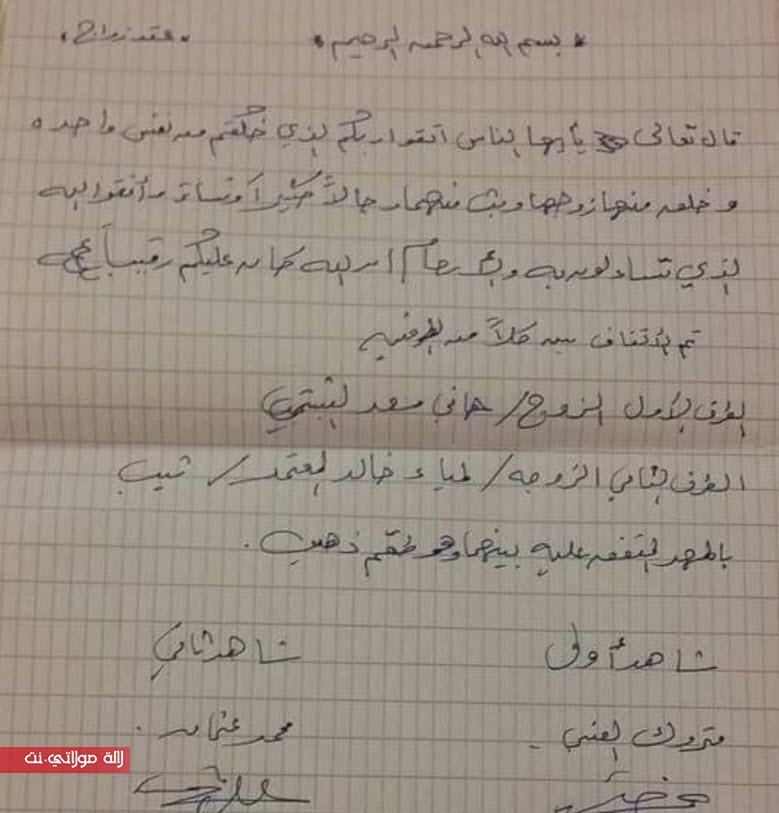 * بسم الله الرحمن الرحيم * . عقد زواج .
قال تعالى يأيها الناس اتقوا ربكم الذي خلقكم من نفس واحده
و خلق منها زوجها وبث منهما رجالاً كثيراً ونساء وأتقوا الله
الذي تساءلون به والأرحام ان الله كان عليكم رقيباً
تم الأتفاف بين كلاً من الطرفين
الطرف الأول الزوج / هاني سعد
الطرف الثاني الزوجه / لمياء خالد المعتمد / ثيب
بالمهر المتفق عليه بينهما وهو طقم ذهب .
شاهد أول شاهد ثاني
متروك محمد عثمان .
لالة مولاتي.نت